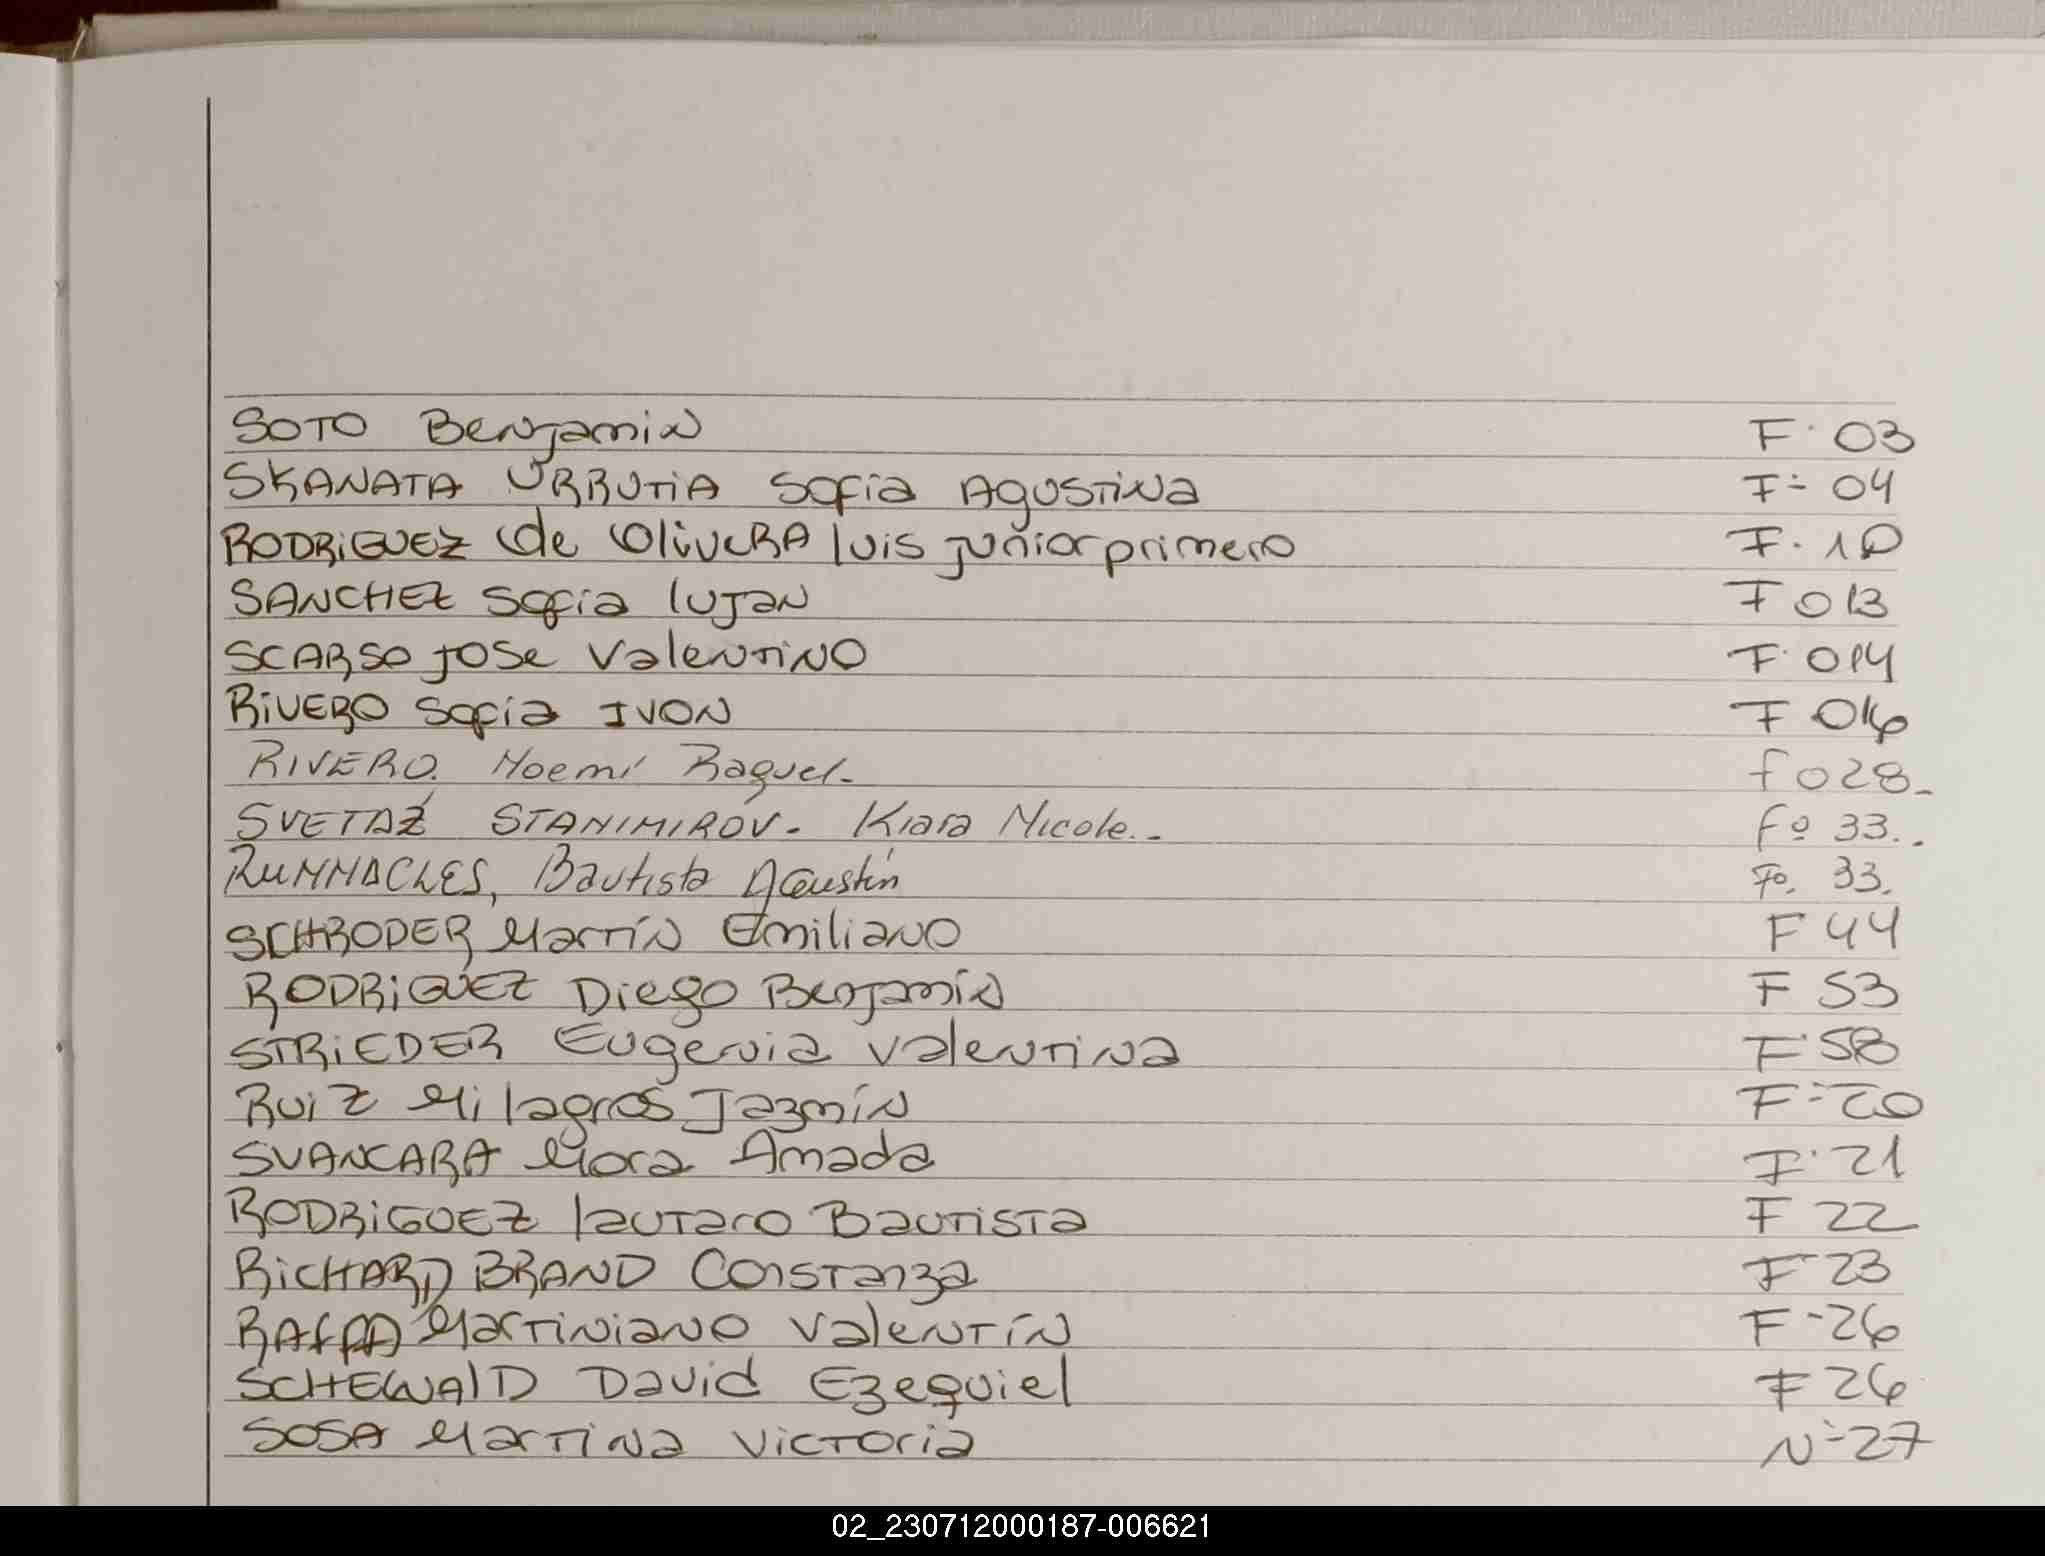 SOTO Benjamin F· 03
SKANATA URRUTIA Sofia Agustina F- 04
RODRIGUEZ de OliveRA luis junior primero F. 10
SANCHEZ Sofia lujan F 013
SCARSO Jose Valentino F· 014
RIVERO Sofia IVON F 016
RIVERO. Noemí Raquel- f 028-
SVETAZ STANIMIROV. Kiara Nicole.. fº 33..
Bautista Agustín Fo. 33.
SCHRODER Martín Emiliano F 44
RODRIGUEZ Diego Benjamín F 53
STRIEDER Eugenia Valentina F 58
Ruiz Milagros Jazmín F- 20
SVANCARA Mora Amada F· 21
RODRIGUEZ lautaro Bautista F 22
RICHARD BRAND Constanza F 23
Martiniano Valentín F -26
SCHEWAlD David Ezequiel F 26
SOSA Martina Victoria N-27
02_230712000187-006621